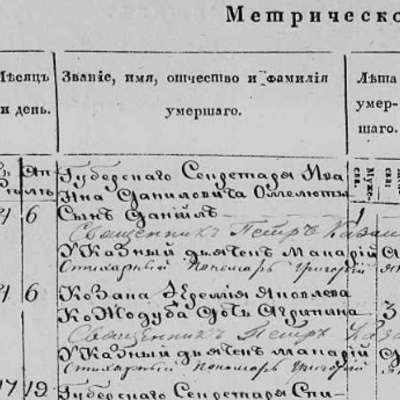 Метрическо
Мѣсяцъ и день.
Званіе, имя, отчество и фамилія умершаго.
Лѣта умер-шаго.
Муже-ска.
Губернскаго Секретаря Ива
на Даниловича Оммелюты
4 6 Сынъ Даніилъ
Священникъ Петръ Казан
Указный дьяченъ Макарій
Стихарный пономарь Григорій
4 6 Козака Іеремія Яковлева
Кожодуба дочь Агрипина 3
Священникъ Петръ Каза
Указный дьяченъ Макарій
Стихарный пономарь Григорій
17 19 Губернскаго Секретаря Спи-